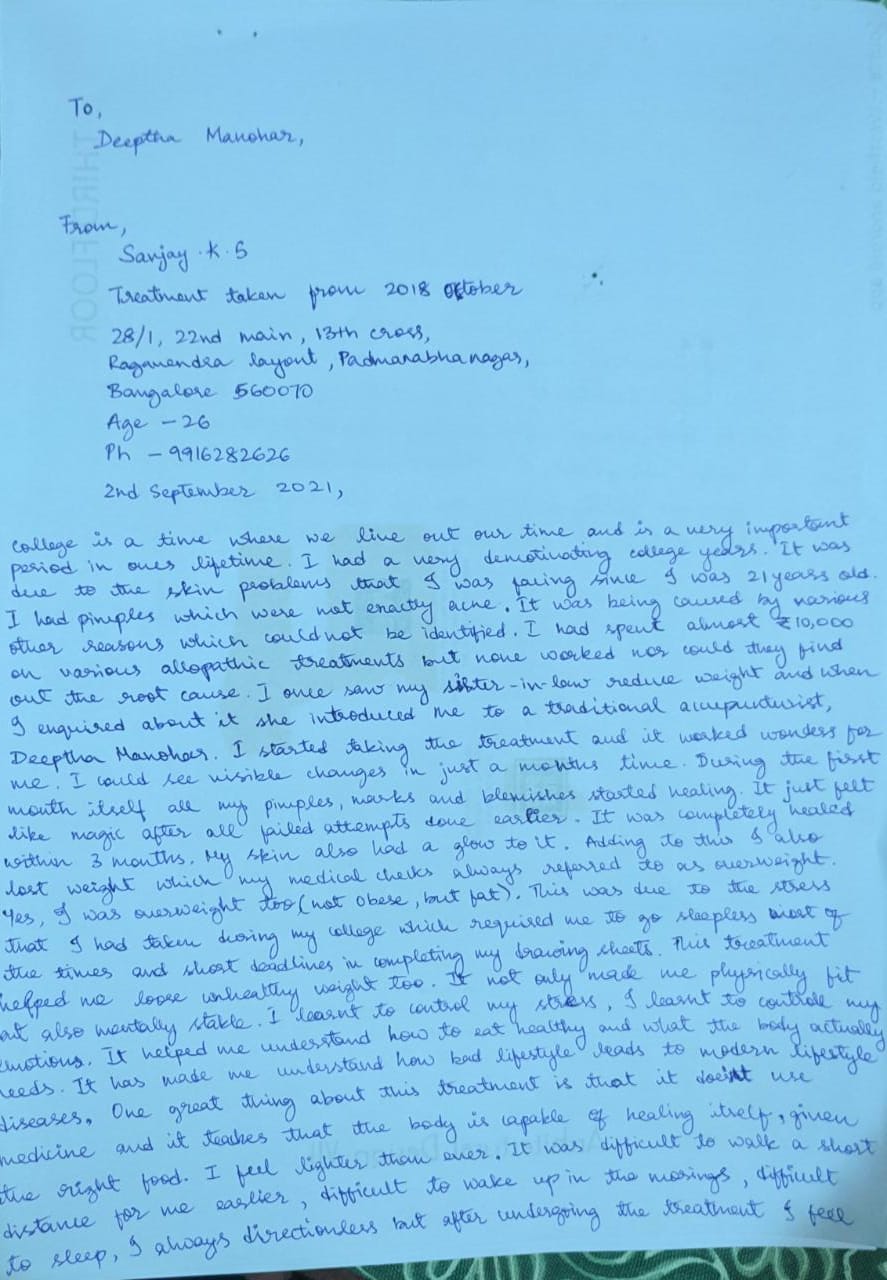 To,
Deeptha Manohar,
From,
Sanjay .K.S
Treatment taken from 2018 october
28/1, 22nd main, 13th cross,
Ragavendra layout, Padmanabhanagar,
Bangalore 560070
Age - 26
Ph - 9916282626
2nd September 2021,
College is a time where we live out our time and is a very important
period in ones lifetime. I had a very demotivating college years. It was
due to the skin problems that I was facing since I was 21 years old.
I had pimples which were not exactly acne. It was being caused by various
other reasons which could not be identified. I had spent almost ₹10,000
on various allopathic treatments but none worked nor could they find
out the root cause. I once saw my sister-in-law reduce weight and when
I enquired about it she introduced me to a traditional acupuncturist,
Deeptha Manohar. I started taking the treatment and it worked wonders for
me. I could see visible changes in just a months time. During the first
month itself all my pimples, marks and blemishes started healing. It just felt
like magic after all failed attempts done earlier. It was completely healed
within 3 months. My skin also had a glow to it. Adding to this I also
lost weight which my medical checks always referred to as overweight.
Yes, I was overweight too (not obese, but fat). This was due to the stress
that I had taken during my college which required me to go sleepless most of
the times and short deadlines in completing my drawing sheets. This treatment
helped me loose unhealthy weight too. It not only made me physically fit
but also mentally stable. I learnt to control my stress, I learnt to controll my
emotions. It helped me understand how to eat healthy and what the body actually
needs. It has made me understand how bad lifestyle leads to modern lifestyle
diseases. One great thing about this treatment is that it doesnt use
medicine and it teaches that the body is capable of healing itself, given
the right food. I feel lighter than ever. It was difficult to walk a short
distance for me earlier, difficult to wake up in the mornings, difficult
to sleep, I always directionless but after undergoing the treatment I feel